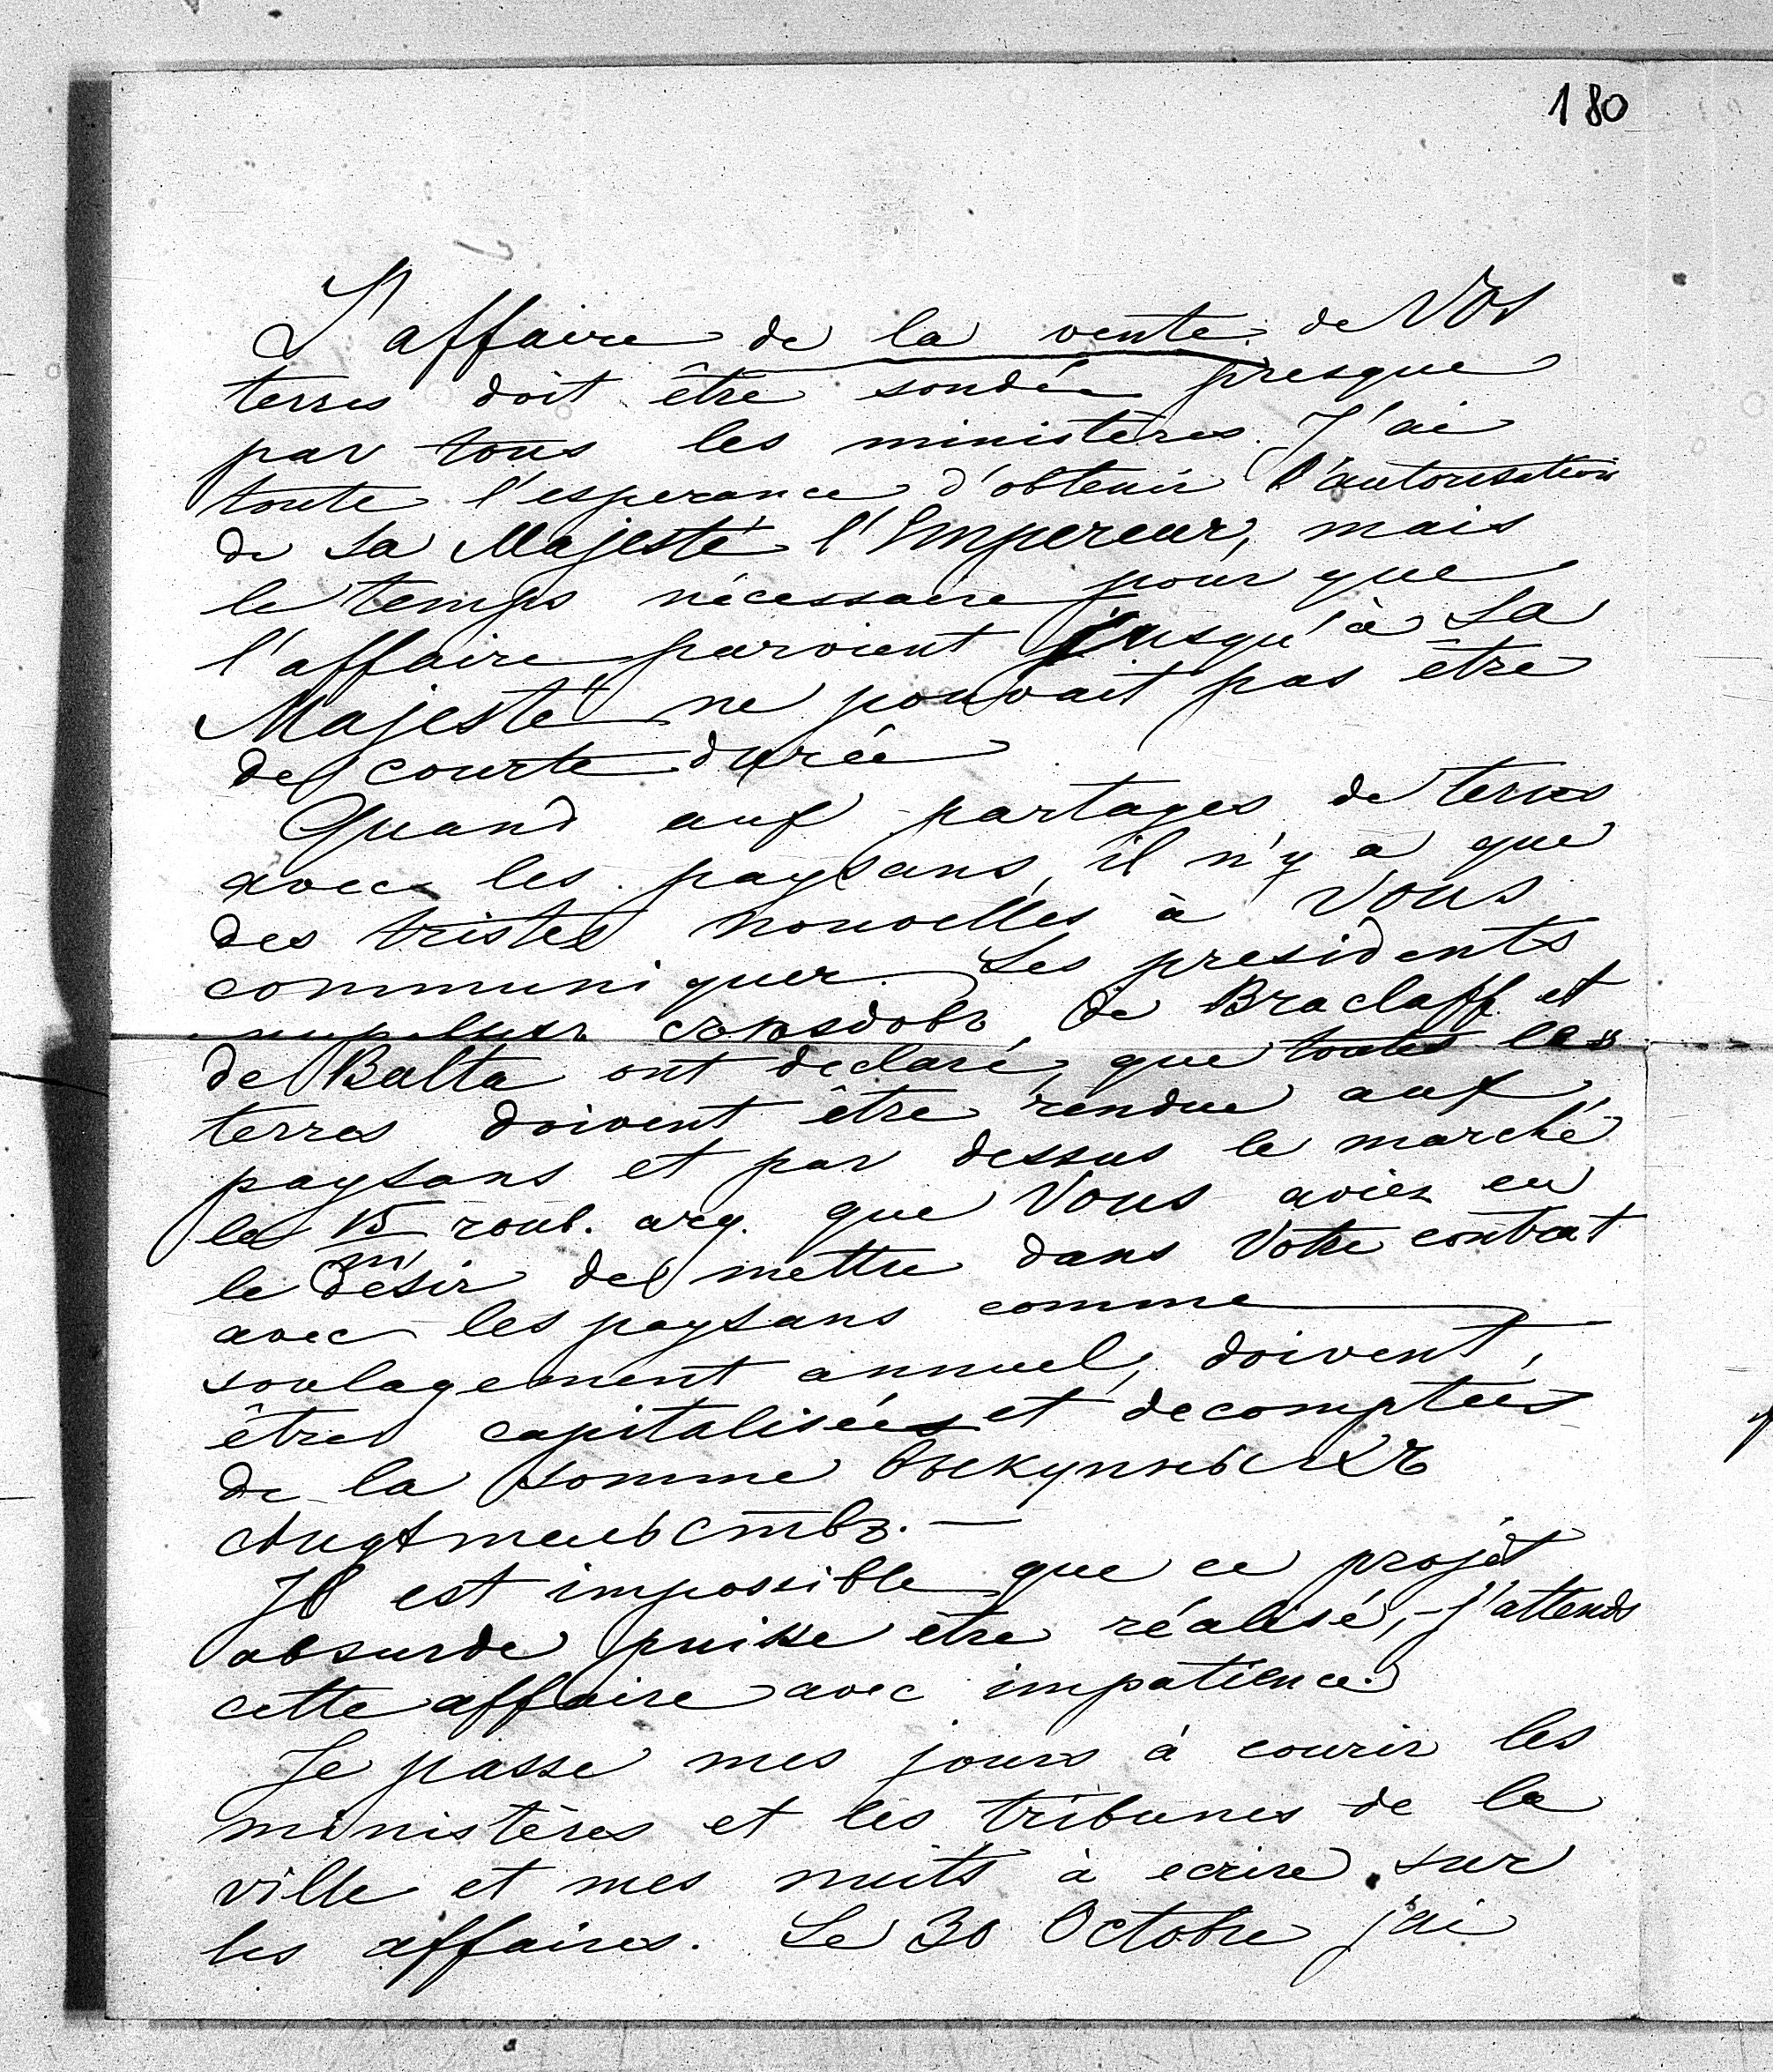 180
L'affaire de la vente de Vos
terres doit être sondée presque
par tous les ministères. J'ai
toute l'esperance d'obtenir l'autorisation
de Sa Majesté l'Empereur, mais
le temps nécessaire pour que
l'affaire parvient jusqu'à Sa
Majesté ne pouvait pas être
de courte durée
Quand aux partages de terres
avec les paysans, il n'y a que
des tristes nouvelles à Vous
communiquer. Les presidents
съѣздовъ de Braclaff et
de Balta ont declaré, que toutes les
terres doivent être rendue aux
paysans et par dessus le marché
les 15/m roub. arg. que Vous aviez eu
le désir de mettre dans Votre contrat
avec les paysans comme
soulagement annuel, doivent,
être capitalisées et decomptées
de la somme выкупныхъ
свидѣтельствъ. —
Il est impossible que ce projèt
absurde puisse être réalisé, - j'attends
cette affaire avec impatience.
Je passe mes jours à courir les
ministères et les tribunes de la
ville et mes nuits à ecrire sur
les affaires. Le 30 Octobre j'ai